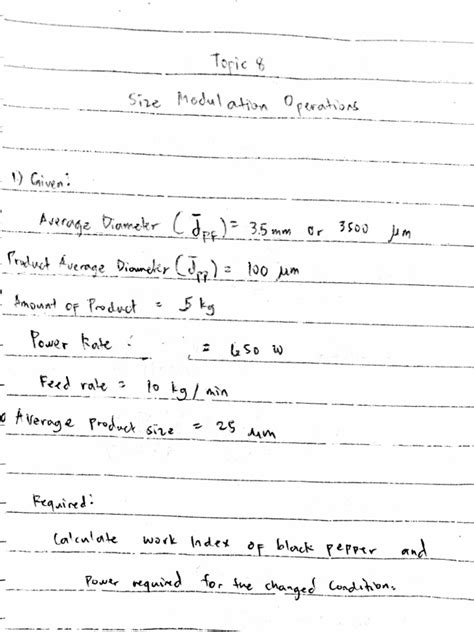 Topic 8
Size Modulation Operations
1) Given:
Average Diameter (d̄pf) = 3.5 mm or 3500 μm
Product Average Diameter (d̄pp) = 100 μm
Amount of Product = 5 kg
Power Rate : = 650 W
Feed rate = 10 kg/min
Average Product size = 25 μm
Required:
Calculate work Index of black pepper and
Power required for the changed conditions.